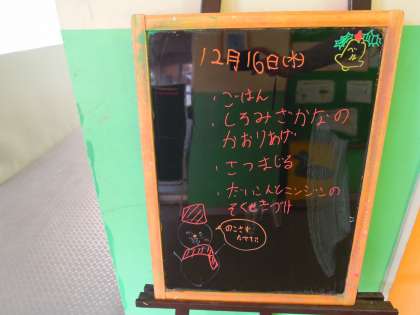 ベル
12月16日(水)
・ごはん
・しろみざかなの
かおりあげ
・さつまじる
・だいこんとニンジンの
そくせきづけ
のこさず
たべてね